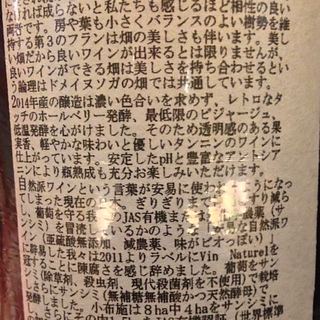 なければ成らないと私たちも感じるほど相性の良い
両者です。房や葉も小さくバランスのよい樹勢を維
持する第3のフランは畑の美しさも伴います。美し
い畑だから良いワインが出来るとは限りませんが、
良いワインができる畑は美しさを持ち合わせるとい
う論理はドメイヌソガの畑では共通しています。
2014年産の醸造は濃い色合いを求めず、レトロなタ
ッチのホールベリー発酵、最低限のピジャージュ、
低温発酵を心がけました。そのため透明感のある果
実香、軽やかな味わいと優しいタンニンのワインに
仕上がっています。安定したpHと豊富なアントシア
ニンにより瓶熟成も充分お楽しみいただけます。
自然派ワインという言葉が安易に使われるようになっ
てしまった現在の日本。ぎりぎりまで
し、葡萄を守る我々のJAS有機
を背負しているかのような
(亜硫酸無添加、減農薬、味がピオっぽい)
に辟易した我々は2011よりラベルにVin Naturelを
冠することに陳腐さを感じ辞めました。葡萄をサン
シミ(除草剤、殺虫剤、現代殺菌剤を不使用)で栽培
し、さらにサンシミ(無補糖無補酸かつ天然酵母)で
発酵しました。小布施は8ha中4haをサンシミに